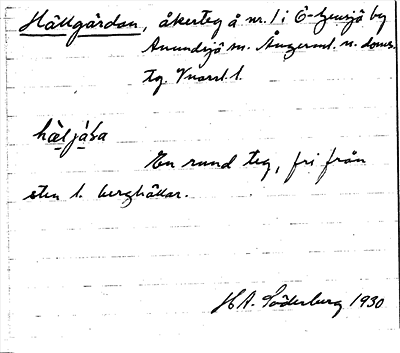 Hällgärdan, åkerteg å nr. 1 i Ö-Gensjö by
Anundsjö sn. Ångerml. n. doms.
tg Vnorrl. l.
hä̀ljáɽa
En rund teg, fri från
sten l. berghällar.
H.A. Söderberg 1930